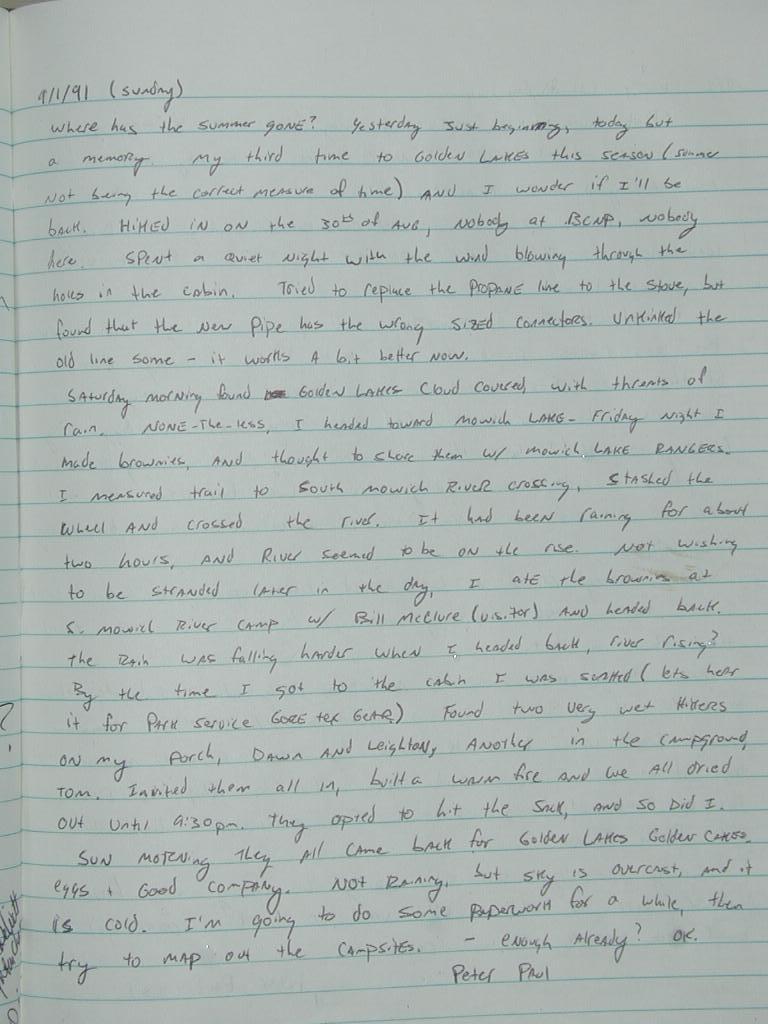 9/1/91 (Sunday)
Where has the summer gone? Yesterday just beginning, today but
a memory. My third time to Golden Lakes this season (summer
not being the correct measure of time) and I wonder if I'll be
back. Hiked in on the 30th of Aug, nobody at BCNP, nobody
here. Spent a quiet night with the wind blowing through the
holes in the cabin. Tried to replace the propane line to the stove, but
found that the new pipe has the wrong sized connectors. Unkinked the
old line some - it works a bit better now.
Saturday morning found Golden Lakes cloud covered, with threats of
rain. None-the-less, I headed toward Mowich Lake - Friday night I
made brownies, and thought to share them w/ Mowich Lake Rangers.
I measured trail to South Mowich River crossing, stashed the
wheel and crossed the river. It had been raining for about
two hours, and river seemed to be on the rise. Not wishing
to be stranded later in the day, I ate the brownies at
S. Mowich River Camp w/ Bill McClure (visitor) and headed back.
The rain was falling harder when I headed back, river rising?
By the time I got to the cabin I was soaked (lets hear
it for Park Service Gore Tex Gear) Found two very wet hikers
on my porch, Dawn and Leighton, another in the campground,
Tom. Invited them all in, built a warm fire and we all dried
out until 9:30pm. They opted to hit the sack, and so did I.
Sun morning they all came back for Golden Lakes Golden Cakes,
eggs + good company. Not raining, but sky is overcast, and it
is cold. I'm going to do some paperwork for a while, then
try to map out the campsites. - enough already? OK.
Peter Paul